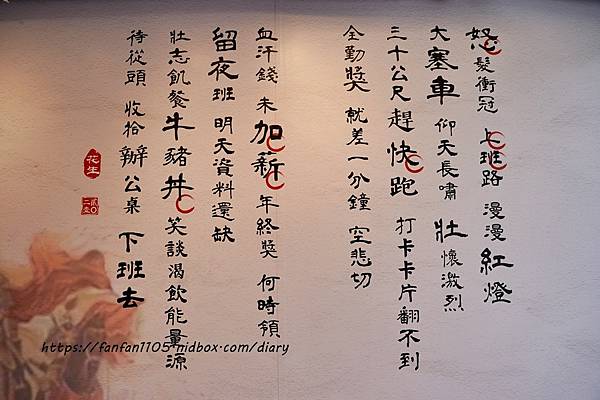 怒髮衝冠 上班路 漫漫 紅燈
大塞車 仰天長嘯 壯懷激烈
三十公尺 趕快跑 打卡卡片翻不到
全勤獎 就差一分鐘 空悲切
血汗錢 未加薪 年終獎 何時領
留夜班 明天資料還缺
壯志飢餐牛豬丼 笑談渴飲能量源
待從頭 收拾辦公桌 下班去
花生
https://fanfan1105.nidbox.com/diary